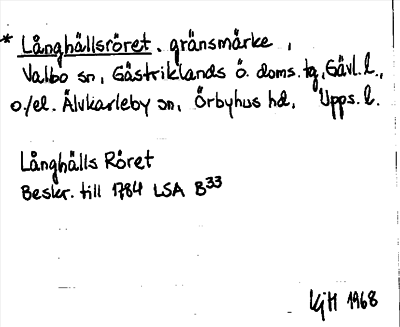 * Långhällsröret, gränsmärke,
Valbo sn, Gästriklands ö. doms. tg, Gävl. l.,
o./el. Älvkarleby sn, Örbyhus hd, Upps. l.
Långhälls Röret
Beskr. till 1784 LSA B33
KjH 1968